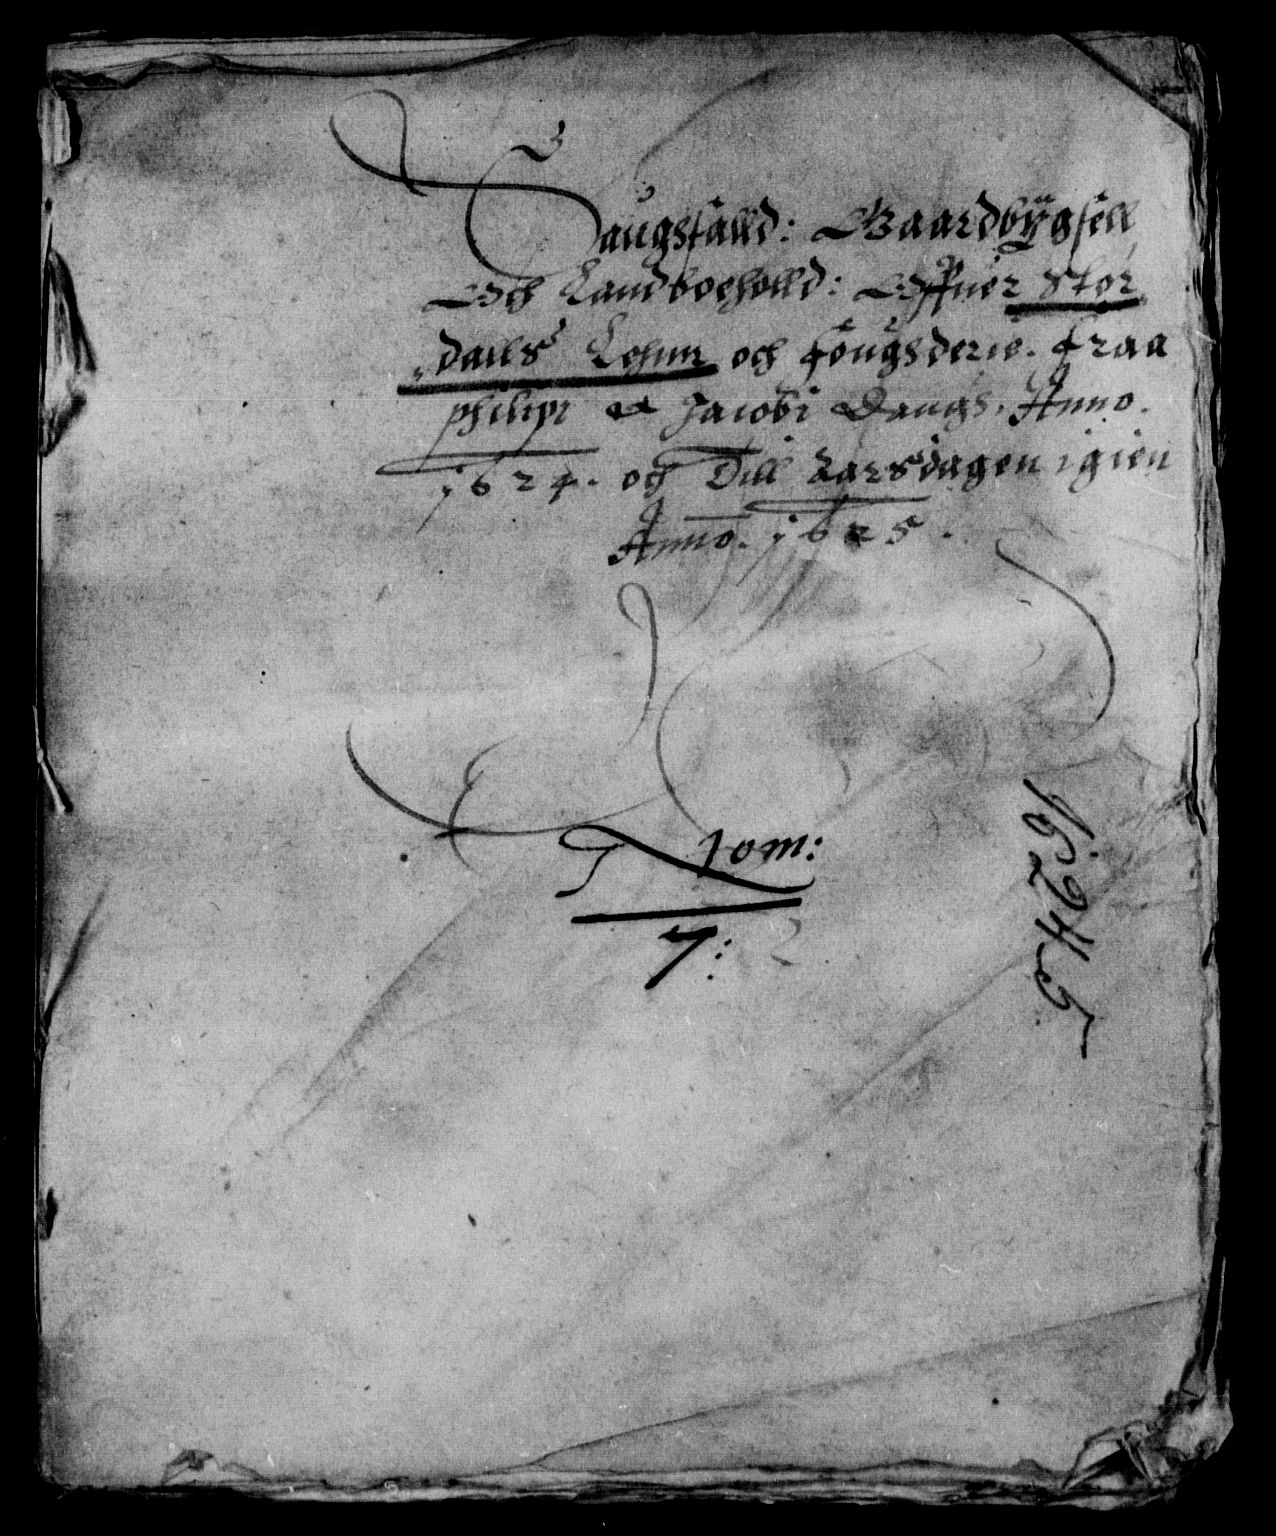 Saugsfalld: Gaardbÿgsell
Och Landboeholld: Offuer Stør
dails Lehnn och føugsderie. fraa
philipi et Jacobi Daugs. Anno.
1624. och Till Aarsdagen igien
Anno. 1625.
Tom:
7:
1624 5